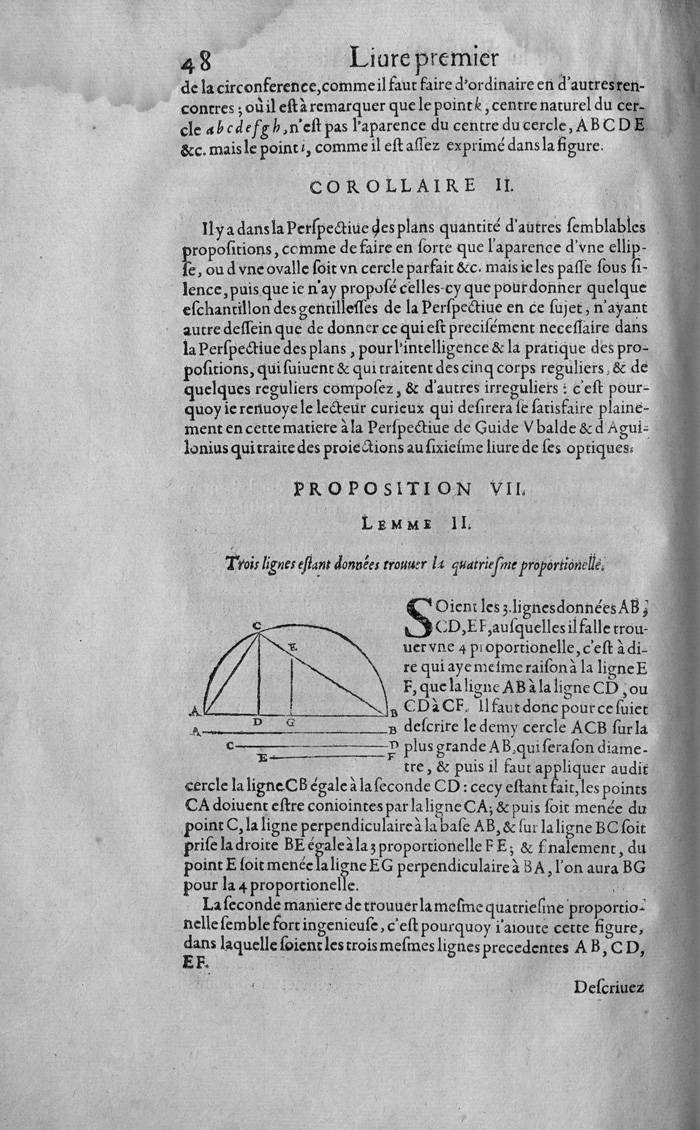 48 Liure premier
de la circonference, comme il faut faire d'ordinaire en d'autres ren-
contres; où il eſt à remarquer que le point k, centre naturel du cer-
cle abcdefgh, n'eſt pas l'aparence du centre du cercle, ABCDE
&c. mais le point i, comme il eſt aſſez exprimé dans la figure.
COROLLAIRE II.
Il y a dans la Perſpectiue des plans quantité d'autres ſemblables
propoſitions, comme de faire en ſorte que l'aparence d'vne ellip-
ſe, ou d vne ovalle ſoit vn cercle parfait &c. mais ie les paſſe ſous ſi-
lence, puis que ie n'ay propoſé celles-cy que pour donner quelque
eſchantillon des gentilleſſes de la Perſpectiue en ce ſujet, n'ayant
autre deſſein que de donner ce qui eſt preciſément neceſſaire dans
la Perſpectiue des plans, pour l'intelligence & la pratique des pro-
poſitions, qui ſuiuent & qui traitent des cinq corps reguliers, & de
quelques reguliers compoſez, & d'autres irreguliers: c'eſt pour-
quoy ie renuoye le lecteur curieux qui deſirera ſe ſatisfaire plaine-
ment en cette matiere à la Perſpectiue de Guide Vbalde & d Agui-
lonius qui traite des proiections au ſixieſme liure de ſes optiques.
PROPOSITION VII.
LEMME II.
Trois lignes eſtant données trouuer la quatrieſme proportionelle.
SOient les 3. lignes données AB,
CD, EF, auſquelles il falle trou-
uer vne 4 proportionelle, c'eſt à di-
re qui aye meſme raiſon à la ligne E
F, que la ligne AB à la ligne CD, ou
CD à CF. Il faut donc pour ce ſuiet
deſcrire le demy cercle ACB ſur la
plus grande AB, qui ſera ſon diame-
tre, & puis il faut appliquer audit
C
E
A
D
G
B
A B
C D
E F
cercle la ligne CB égale à la ſeconde CD: cecy eſtant fait, les points
CA doiuent eſtre coniointes par la ligne CA; & puis ſoit menée du
point C, la ligne perpendiculaire à la baſe AB, & ſur la ligne BC ſoit
priſe la droite BE égale à la 3 proportionelle FE; & finalement, du
point E ſoit menée la ligne EG perpendiculaire à BA, l'on aura BG
pour la 4 proportionelle.
La ſeconde maniere de trouuer la meſme quatrieſme proportio-
nelle ſemble fort ingenieuſe, c'eſt pourquoy i'aioute cette figure,
dans laquelle ſoient les trois meſmes lignes precedentes AB, CD,
EF.
Deſcriuez